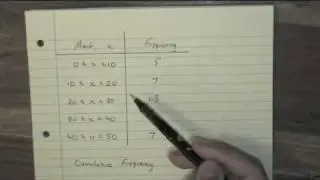 Mark, x Frequency
0 ≤ x ≤ 10 5
10 ≤ x ≤ 20 7
20 ≤ x ≤ 30
30 ≤ x ≤ 40
40 ≤ x ≤ 50 7
Cumulative Frequency